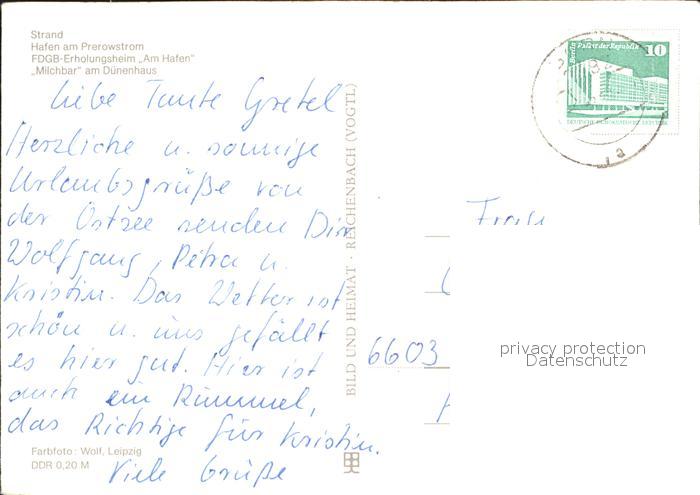 Strand
Hafen am Prerowstrom
FDGB-Erholungsheim „Am Hafen"
„Milchbar" am Dünenhaus
Liebe Tante Gretel
Herzliche u. sonnige
Urlaubsgrüße von
der Ostsee senden Dir
Wolfgang, Petra u.
Kristin. Das Wetter ist
schön u. uns gefällt
es hier gut. Hier ist
auch ein Rummel,
das Richtige für Kristin.
Viele Grüße
Farbfoto: Wolf, Leipzig
DDR 0,20 M
BILD UND HEIMAT · REICHENBACH (VOGTL)
Berlin Palast der Republik
10
DEUTSCHE DEMOKRATISCHE REPUBLIK
a
Frau
6603
privacy protection
Datenschutz